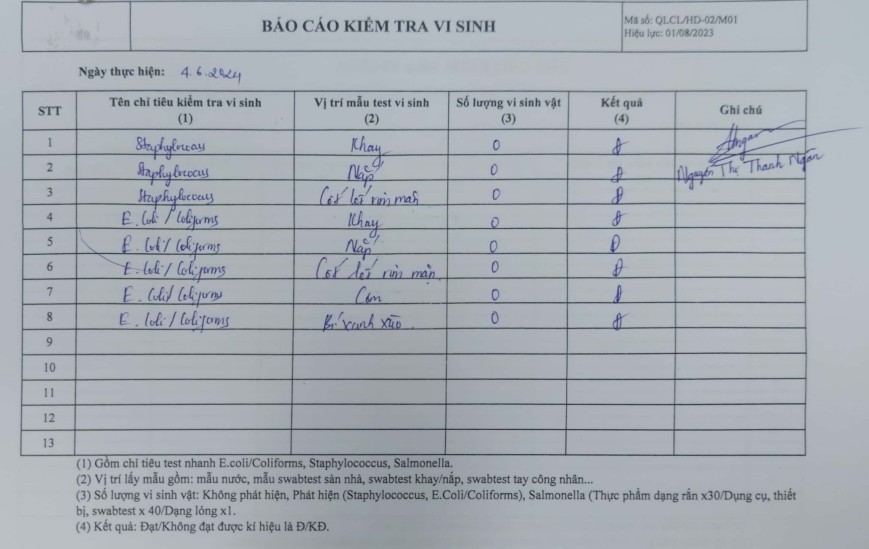 BÁO CÁO KIỂM TRA VI SINH
Mã số: QLCL/HD-02/M01
Hiệu lực: 01/08/2023
Ngày thực hiện: 4.6.2024
STT Tên chỉ tiêu kiểm tra vi sinh (1) Vị trí mẫu test vi sinh (2) Số lượng vi sinh vật (3) Kết quả (4) Ghi chú
1 Staphylococcus Khay 0 Đ
2 Staphylococcus Nắp 0 Đ Nguyễn Thị Thanh Ngân
3 Staphylococcus Cốt lết rim mặn 0 Đ
4 E. Coli / Coliforms Khay 0 Đ
5 E. Coli / Coliforms Nắp 0 Đ
6 E. Coli / Coliforms Cốt lết rim mặn 0 Đ
7 E. Coli / Coliforms Cơm 0 Đ
8 E. Coli / Coliforms Bí xanh xào 0 Đ
9
10
11
12
13
(1) Gồm chỉ tiêu test nhanh E.coli/Coliforms, Staphylococcus, Salmonella.
(2) Vị trí lấy mẫu gồm: mẫu nước, mẫu swabtest sàn nhà, swabtest khay/nắp, swabtest tay công nhân...
(3) Số lượng vi sinh vật: Không phát hiện, Phát hiện (Staphylococcus, E.Coli/Coliforms), Salmonella (Thực phẩm dạng rắn x30/Dụng cụ, thiết
bị, swabtest x 40/Dạng lỏng x1.
(4) Kết quả: Đạt/Không đạt được kí hiệu là Đ/KĐ.